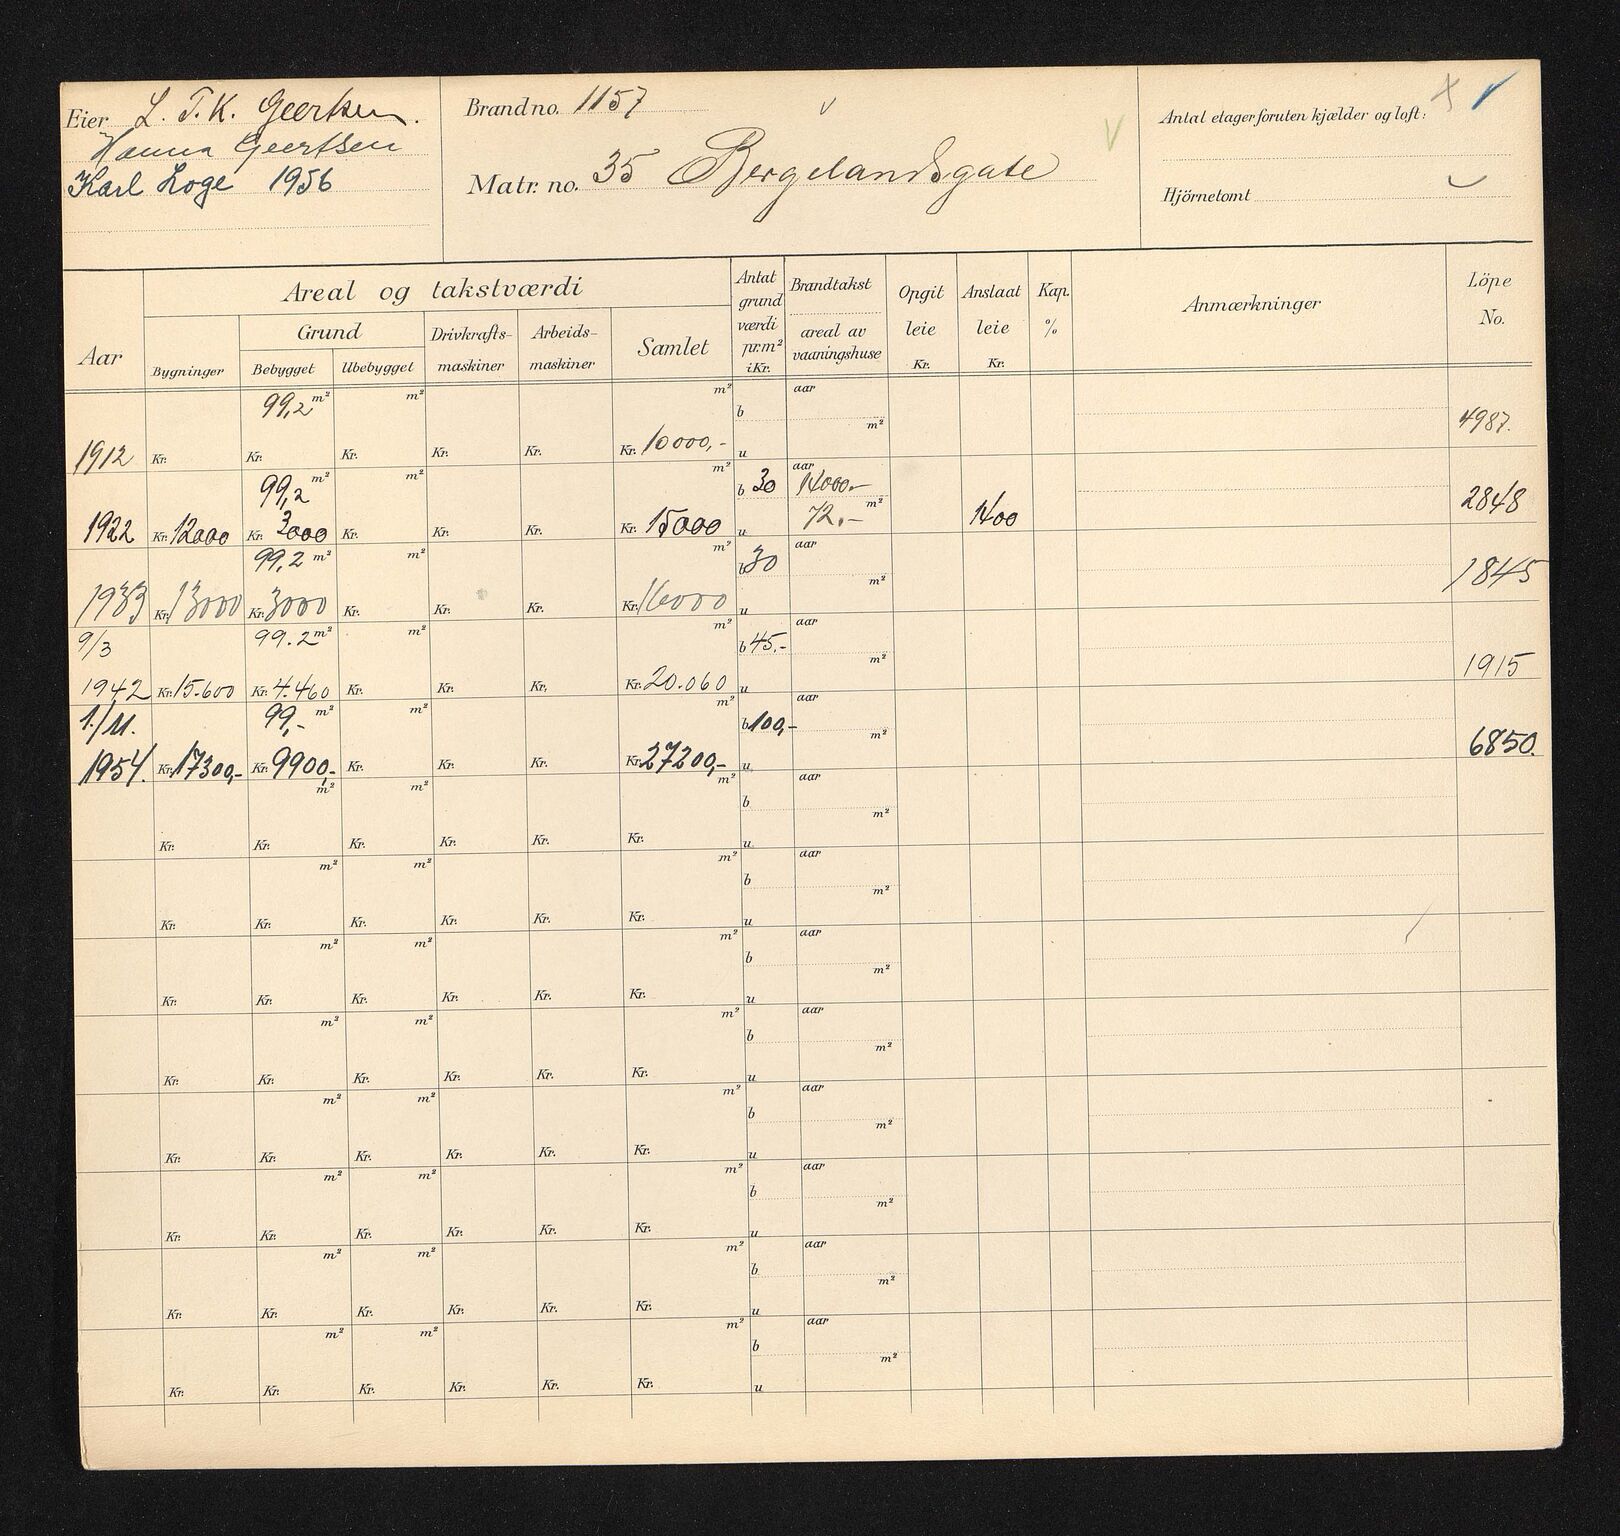 Eier L. T. K. Geertsen.
Hanna Geertsen
Karl Loge 1956
Brandno. 1157
Matr. no. 35 Bergelandsgate
Antal etager foruten kjælder og loft:
Hjörnetomt
Aar
Areal og takstværdi
Bygninger
Grund
Bebygget Ubebygget
Drivkrafts-
maskiner
Arbeids-
maskiner
Samlet
Antat
grund
værdi
pr.m²
i Kr.
Brandtakst
areal av
vaaningshuse
Opgit
leie
Kr.
Anslaat
leie
Kr.
Kap.
%
Anmærkninger
Löpe
No.
99,2 m² m² m² b aar m² 4987.
1912 Kr. Kr. Kr. Kr. Kr. Kr. 10000,- u
99,2 m² m² m² b 30 aar 14000.- 2848
1922 Kr. 12000 Kr. 3000 Kr. Kr. Kr. Kr. 15000 u 72,- m² 1400
99,2 m² m² m² b 30 aar m² 1845
1933 Kr. 13000 Kr. 3000 Kr. Kr. Kr. Kr. 16000 u
9/3 99.2 m² m² m² b 45.- aar m² 1915
1942 Kr. 15.600 Kr. 4.460 Kr. Kr. Kr. Kr. 20.060 u
1./11. 99,- m² m² m² b 100,- aar m² 6850.
1954. Kr. 17300,- Kr. 9900,- Kr. Kr. Kr. Kr. 27200,- u
m² m² m² b aar m²
Kr. Kr. Kr. Kr. Kr. Kr. u
m² m² m² b aar m²
Kr. Kr. Kr. Kr. Kr. Kr. u
m² m² m² b aar m²
Kr. Kr. Kr. Kr. Kr. Kr. u
m² m² m² b aar m²
Kr. Kr. Kr. Kr. Kr. Kr. u
m² m² m² b aar m²
Kr. Kr. Kr. Kr. Kr. Kr. u
m² m² m² b aar m²
Kr. Kr. Kr. Kr. Kr. Kr. u
m² m² m² b aar m²
Kr. Kr. Kr. Kr. Kr. Kr. u
m² m² m² b aar m²
Kr. Kr. Kr. Kr. Kr. Kr. u